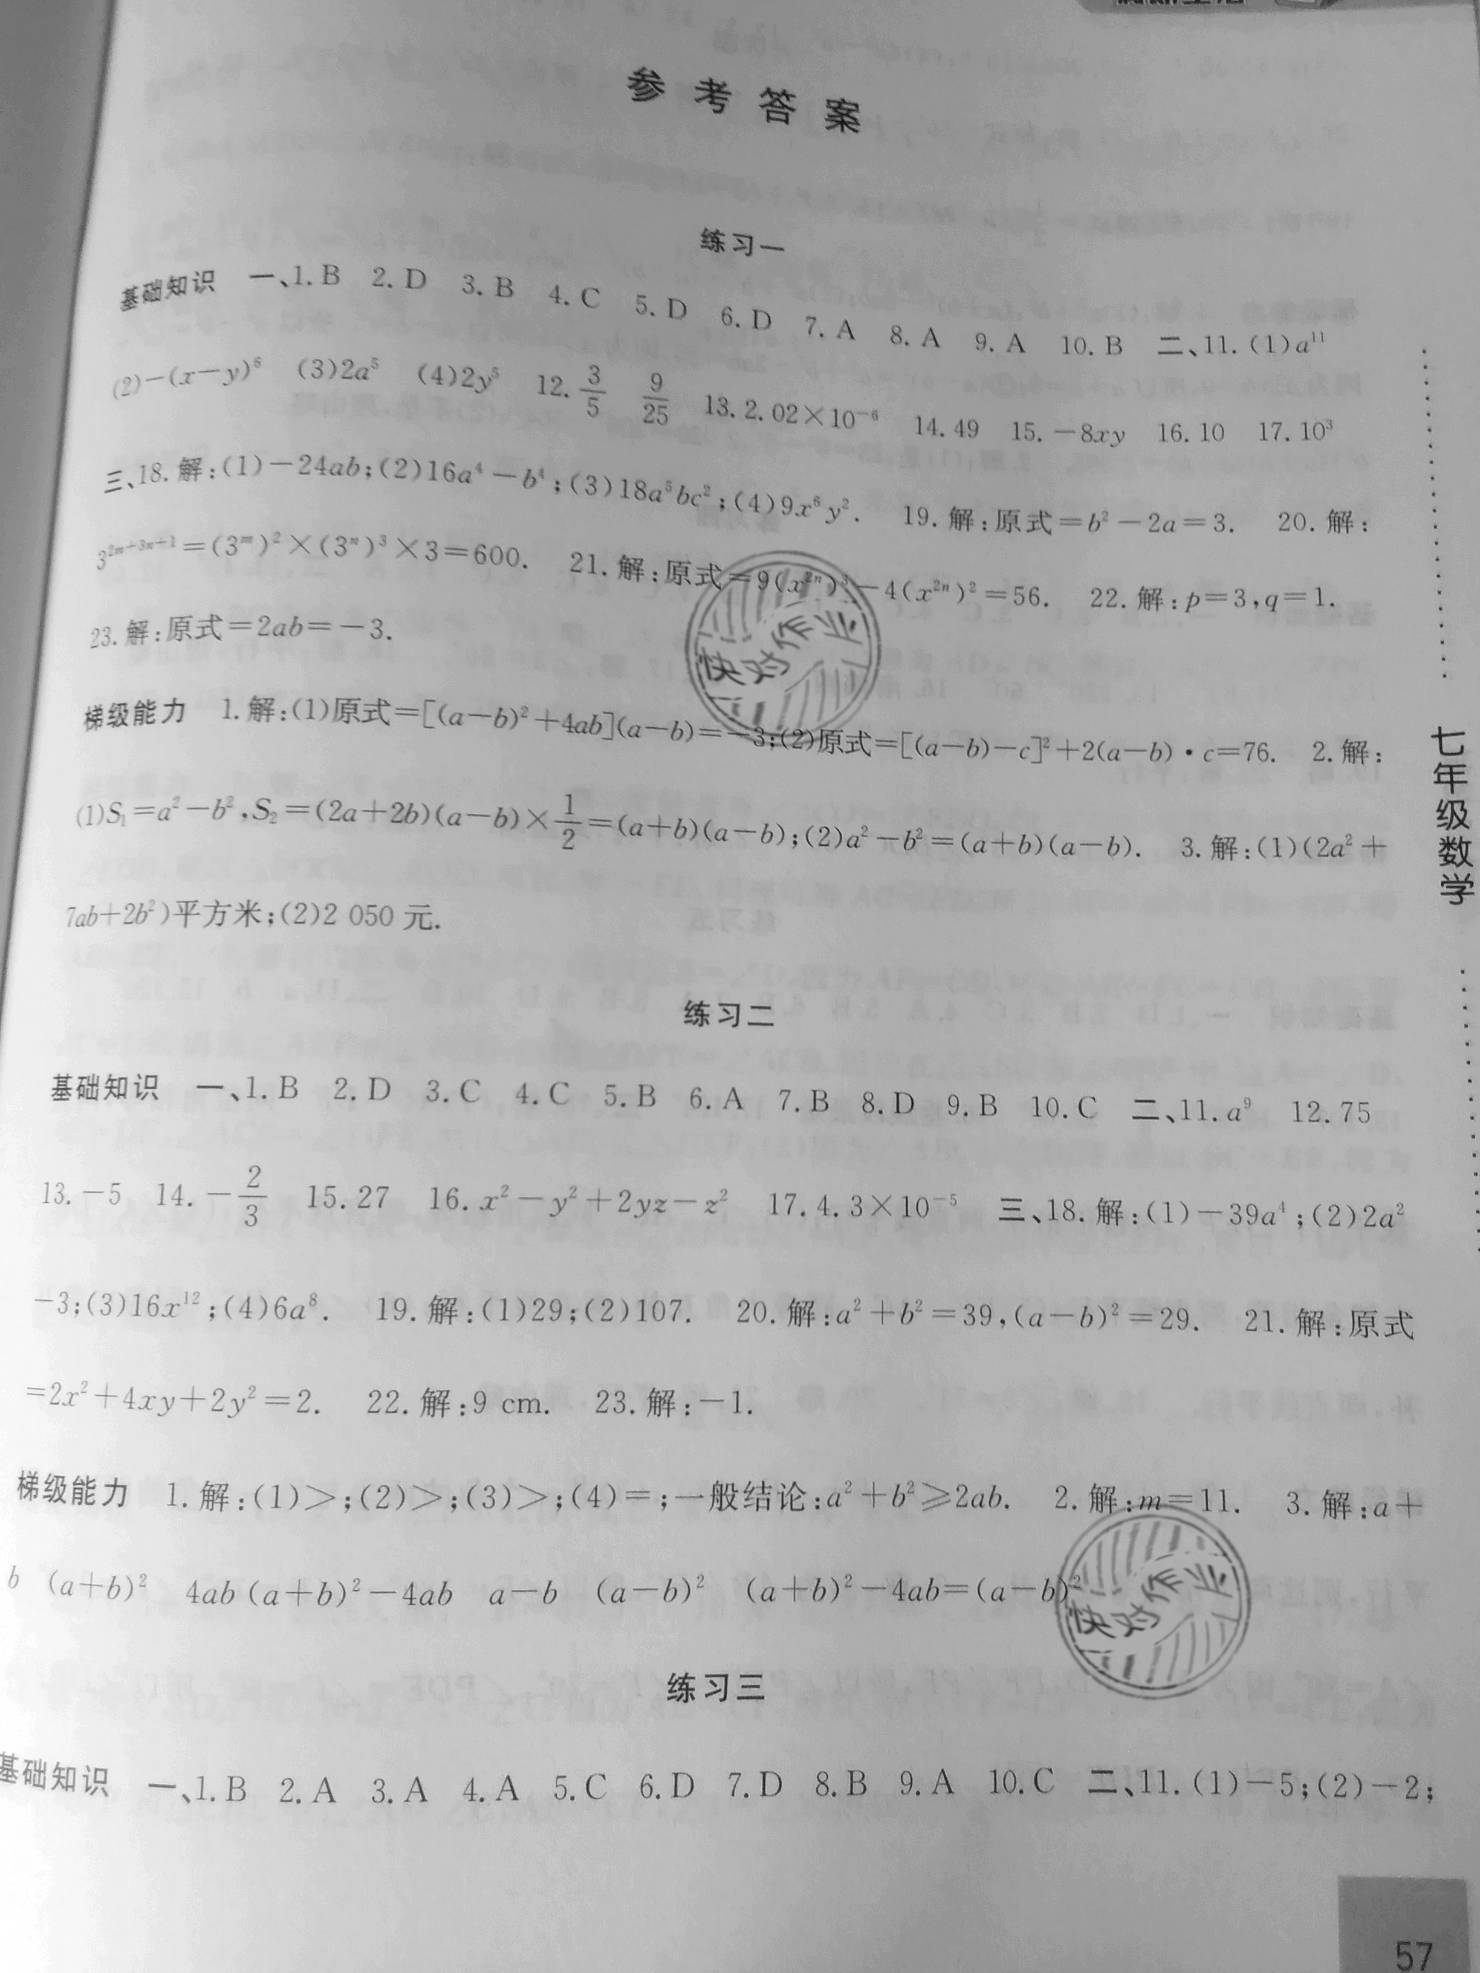 参考答案
练习一
基础知识 一、1.B 2.D 3.B 4.C 5.D 6.D 7.A 8.A 9.A 10.B 二、11.(1)a¹¹
(2)-(x-y)⁶ (3)2a⁵ (4)2y⁵ 12. 3/5 9/25 13.2.02×10⁻⁶ 14.49 15.-8xy 16.10 17.10³
三、18.解:(1)-24ab;(2)16a⁴-b⁴;(3)18a⁵bc²;(4)9x⁶y². 19.解:原式=b²-2a=3. 20.解:
3²ᵐ⁺³ⁿ⁺¹=(3ᵐ)²×(3ⁿ)³×3=600. 21.解:原式=9(x²ⁿ)³-4(x²ⁿ)²=56. 22.解:p=3,q=1.
23.解:原式=2ab=-3.
梯级能力 1.解:(1)原式=[(a-b)²+4ab](a-b)=-3;(2)原式=[(a-b)-c]²+2(a-b)·c=76. 2.解:
(1)S₁=a²-b²,S₂=(2a+2b)(a-b)×1/2=(a+b)(a-b);(2)a²-b²=(a+b)(a-b). 3.解:(1)(2a²+
7ab+2b²)平方米;(2)2 050元.
练习二
基础知识 一、1.B 2.D 3.C 4.C 5.B 6.A 7.B 8.D 9.B 10.C 二、11.a⁹ 12.75
13.-5 14.-2/3 15.27 16.x²-y²+2yz-z² 17.4.3×10⁻⁵ 三、18.解:(1)-39a⁴;(2)2a²
-3;(3)16x¹²;(4)6a⁸. 19.解:(1)29;(2)107. 20.解:a²+b²=39,(a-b)²=29. 21.解:原式
=2x²+4xy+2y²=2. 22.解:9 cm. 23.解:-1.
梯级能力 1.解:(1)>;(2)>;(3)>;(4)=;一般结论:a²+b²≥2ab. 2.解:m=11. 3.解:a+
b (a+b)² 4ab (a+b)²-4ab a-b (a-b)² (a+b)²-4ab=(a-b)²
练习三
基础知识 一、1.B 2.A 3.A 4.A 5.C 6.D 7.D 8.B 9.A 10.C 二、11.(1)-5;(2)-2;
七年级数学
57
快对作业
快对作业